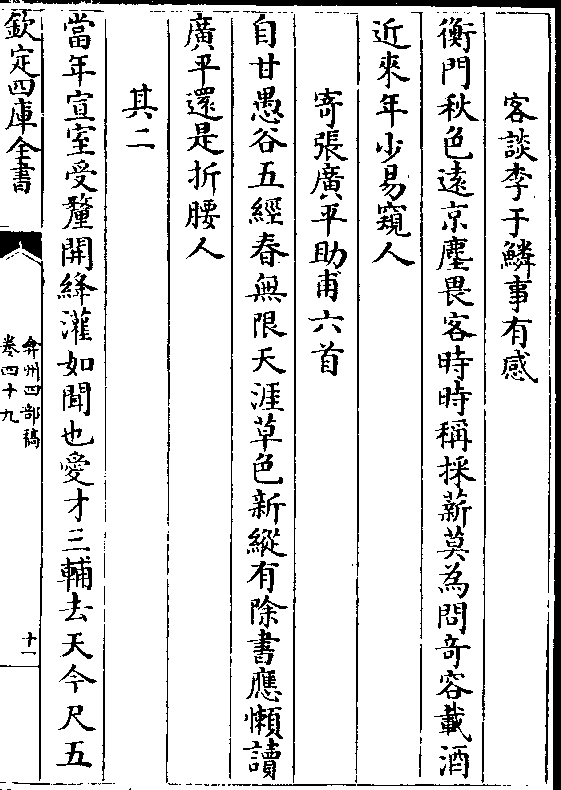 客談李于鱗事有感
衡門秋色遠京塵畏客時時稱採薪莫為問奇容載酒
近來年少易窺人
寄張廣平助甫六首
自甘愚谷五經春無限天涯草色新縱有除書應懶讀
廣平還是折腰人
其二
當年宣室受釐開絳灌如聞也愛才三輔去天今尺五
欽定四庫全書
弇州四部稿
卷四十九
十一